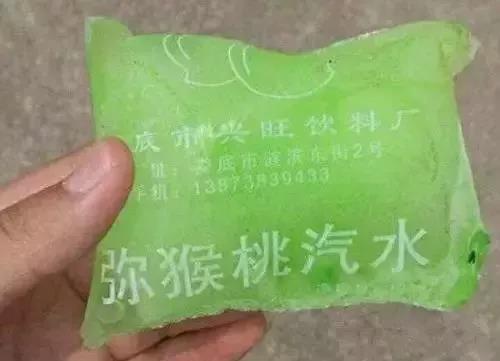 底市兴旺饮料厂
址:娄底市涟滨东街2号
手机:13873839433
弥猴桃汽水